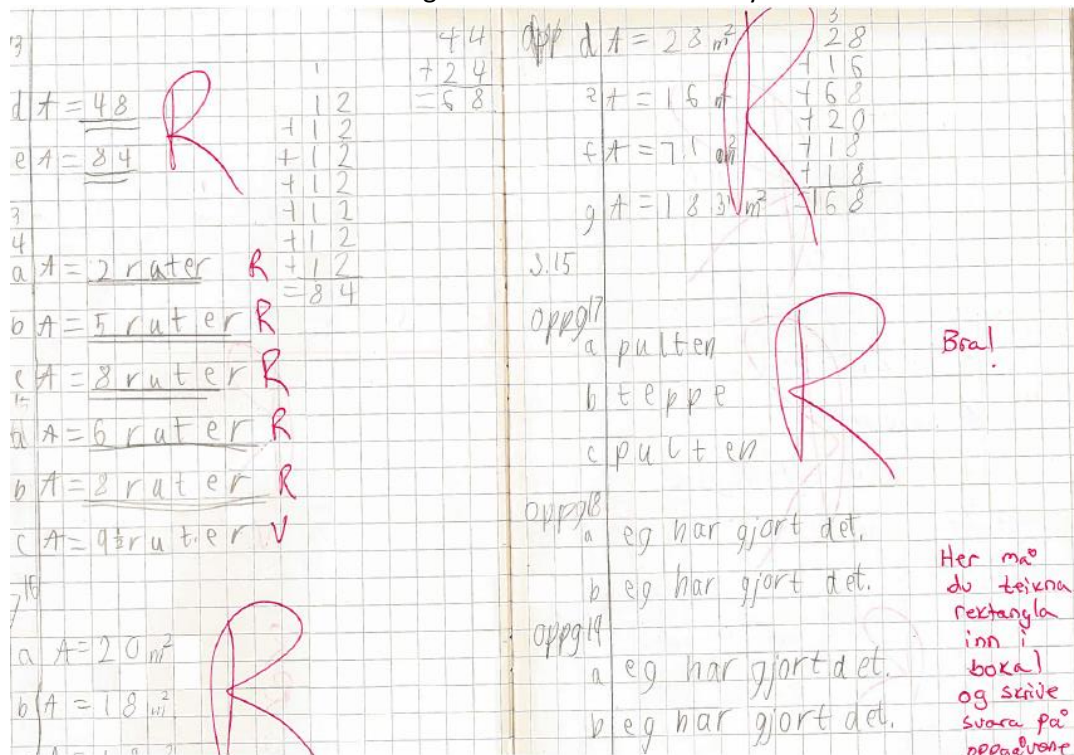 d A = 48 R
e A = 84
44
+ 24
= 68
12
+ 12
+ 12
+ 12
+ 12
+ 12
+ 12
= 84
3
4
a A = 2 ruter R
b A = 5 ruter R
c A = 8 ruter R
a A = 6 ruter R
b A = 8 ruter R
c A = 9½ ruter V
16
a A = 20 m²
b A = 18 m²
R
opp d A = 28 m²
A = 16 m
f A = 71 m²
g A = 183 m²
R
3
28
+ 16
+ 68
+ 20
+ 18
+ 18
= 168
S.15
oppg17
a pulten
b teppe
c pulten
R
Bra!
oppg18
a eg har gjort det.
b eg har gjort det.
oppg19
a eg har gjort det.
b eg har gjort det.
Her må
du teikna
rektangla
inn i
boka!
og skrive
svara på
oppgåvene